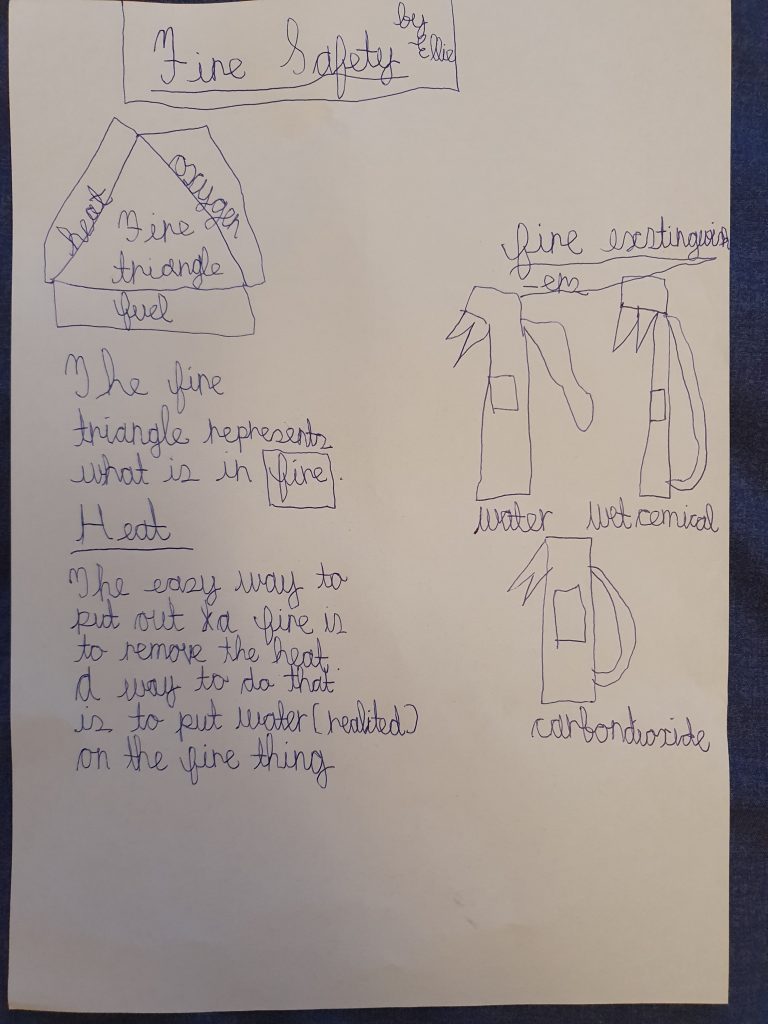 Fire Safety
by
Ellie
heat
oxygen
Fire
triangle
fuel
The fire
triangle represents
what is in fire.
Heat
The easy way to
put out a fire is
to remove the heat.
A way to do that
is to put water (realited)
on the fire thing
fire exstinguish
-ers
water
wet cemical
carbondioxide